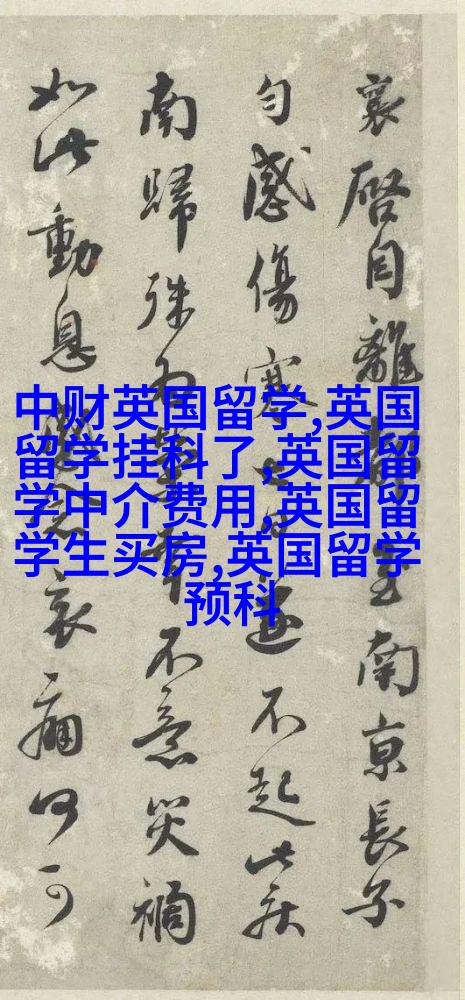 中财英国留学,英国
留学挂科了,英国留
学中介费用,英国留
学生买房,英国留学
预科
襄啓自離都至南京長子
匀感傷寒七日遂不起此疾
南歸殊為榮幸不意災禍
如此動息感念哀痛何可